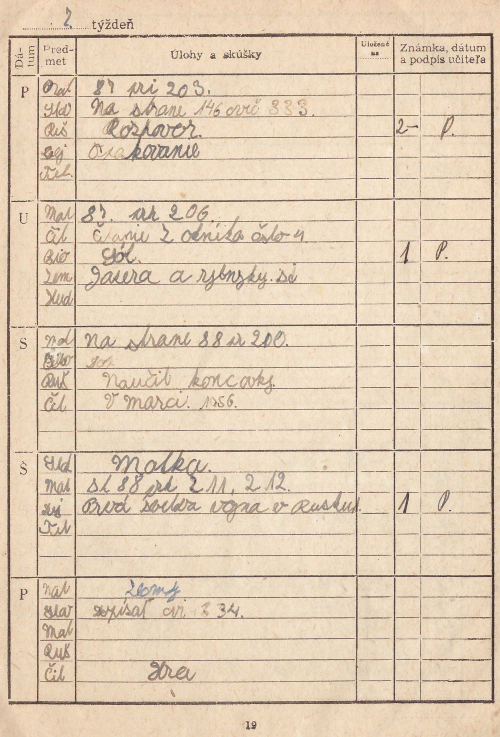 7. týždeň
Dátum Predmet Úlohy a skúšky Uložené na Známka, dátum a podpis učiteľa
P Mat 87 pri 203.
Slov Na strane 146 cvič 333.
Ruš Rozhovor. 2- P.
Dej Opakovanie
Tel.
U Mat 87. pr 206.
Čít Čítanie Z číslo 4
Bio Soľ. 1 P.
Zem Jazera a rybníky.
Hud
S Mat Na strane 88 200.
Bio
Ruš Naučiť koncovky.
Čít V marci 1956.
Š Slov Matka.
Mat st 88 pr 211, 212.
Dej Prvá vojna v Rusku. 1 P.
Tel
P
Slov cvi 334.
Mat
Ruš
Čít Hra
19